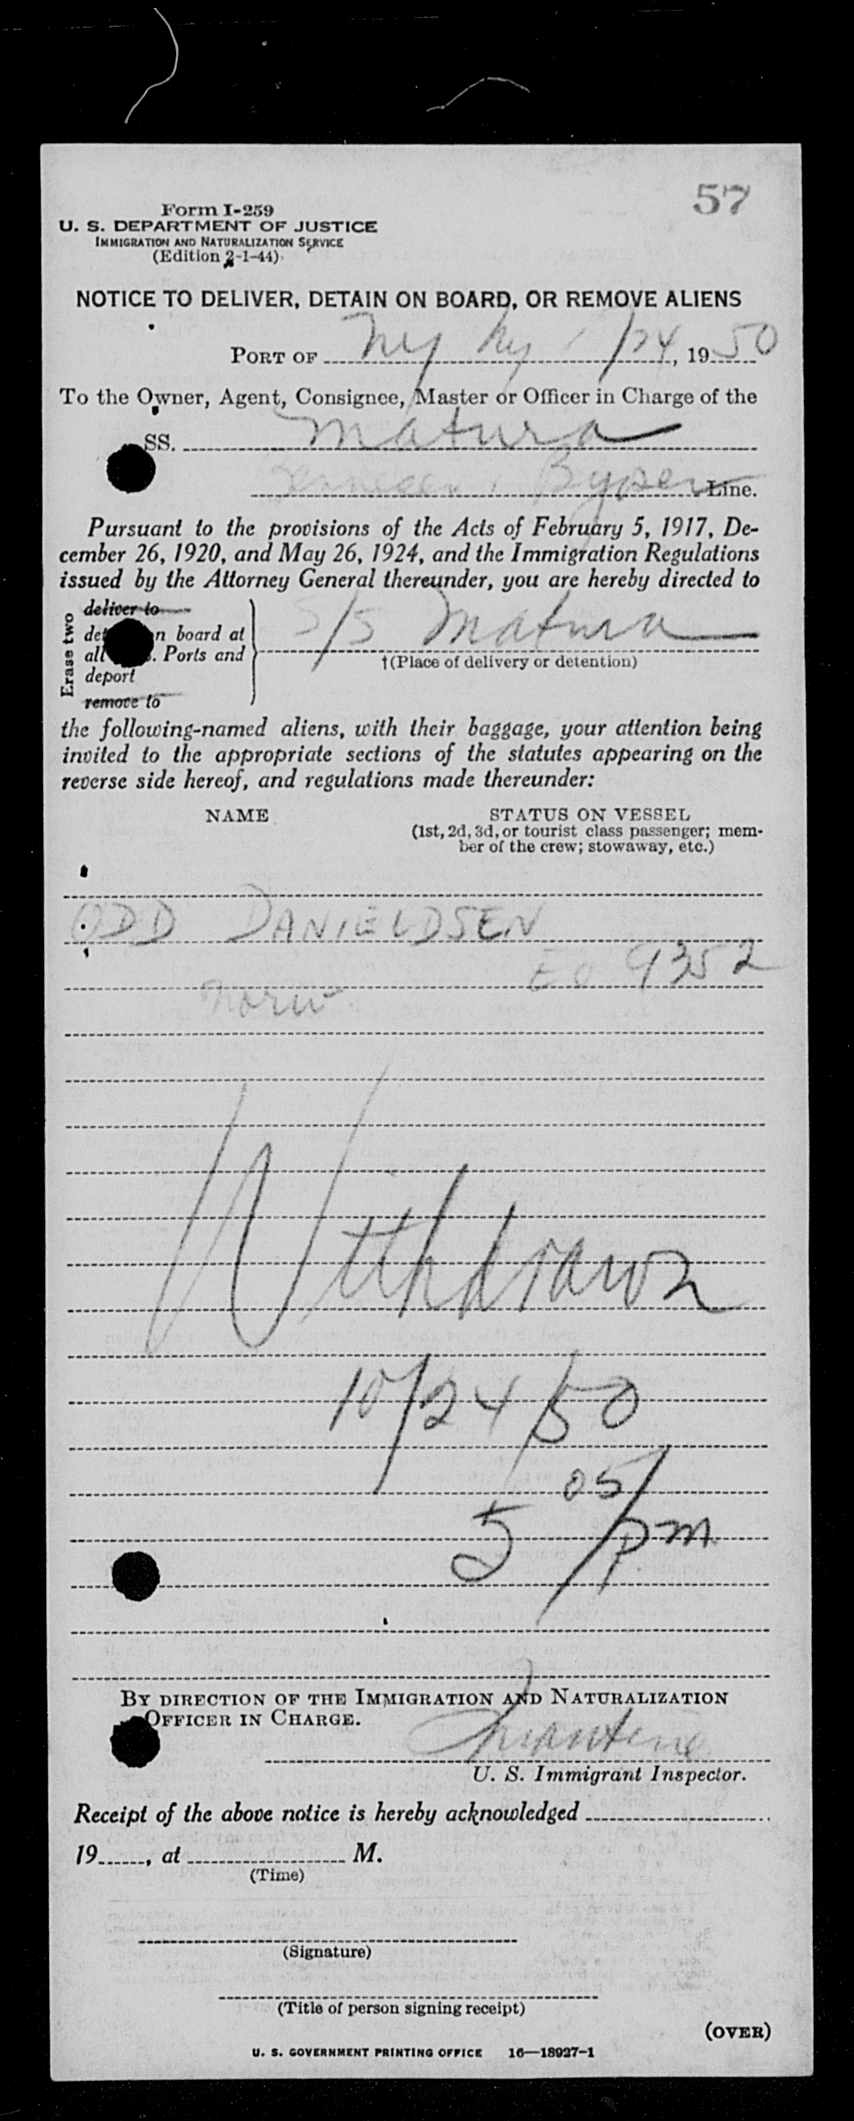 57
Form I-259
U. S. DEPARTMENT OF JUSTICE
IMMIGRATION AND NATURALIZATION SERVICE
(Edition 2-1-44)
NOTICE TO DELIVER, DETAIN ON BOARD, OR REMOVE ALIENS
PORT OF NY NY /24, 1950
To the Owner, Agent, Consignee, Master or Officer in Charge of the
SS. Matura
Line.
Pursuant to the provisions of the Acts of February 5, 1917, De-
cember 26, 1920, and May 26, 1924, and the Immigration Regulations
issued by the Attorney General thereunder, you are hereby directed to
Erase two
deliver to
n board at
all . Ports and
deport
remove to
S/S Matura
†(Place of delivery or detention)
the following-named aliens, with their baggage, your attention being
invited to the appropriate sections of the statutes appearing on the
reverse side hereof, and regulations made thereunder:
NAME STATUS ON VESSEL
(1st, 2d, 3d, or tourist class passenger; mem-
ber of the crew; stowaway, etc.)
ODD DANIELDSEN
EO 9352
Norw
Withdrawn
10/24/50
5 05/pm
BY DIRECTION OF THE IMMIGRATION AND NATURALIZATION
OFFICER IN CHARGE.
U. S. Immigrant Inspector.
Receipt of the above notice is hereby acknowledged
19 , at M.
(Time)
(Signature)
(Title of person signing receipt)
(OVER)
U. S. GOVERNMENT PRINTING OFFICE 16—18927-1